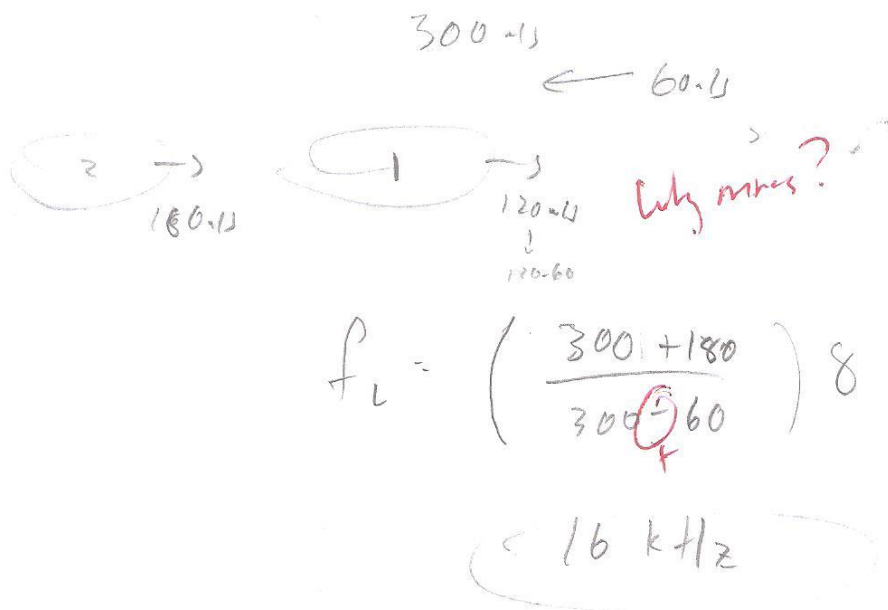 300 m/s
← 60 m/s
2 → 1 →
180 m/s 120 m/s
↓
120-60
Why minus?
f_L = ( 300 + 180 / 300 - 60 ) 8
+
16 kHz